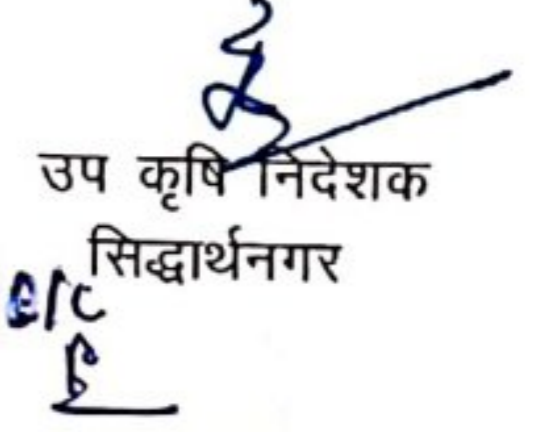 उप कृषि निदेशक
सिद्धार्थनगर